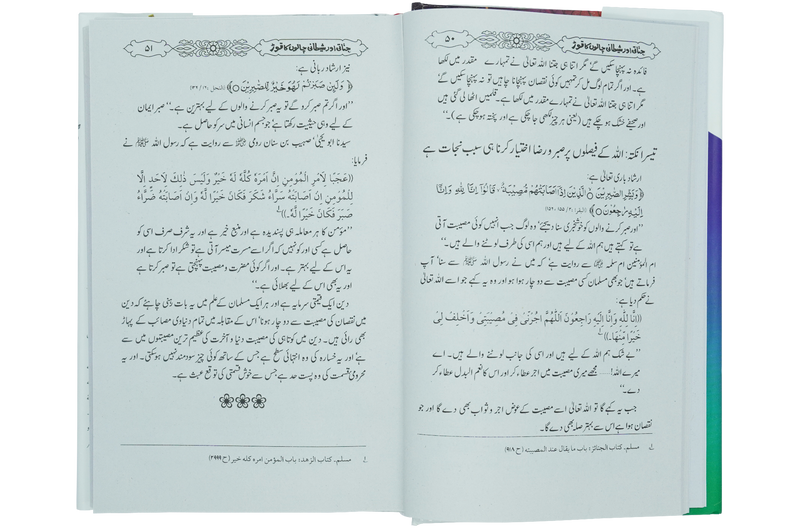 ۵۰
جناتی اور شیطانی چالوں کا توڑ
فائدہ نہ پہنچا سکیں گے مگر اتنا ہی جتنا اللہ تعالیٰ نے تمہارے مقدر میں لکھا
ہے۔ اور اگر تمام لوگ مل کر تمہیں کوئی نقصان پہنچانا چاہیں تو نہ پہنچا سکیں گے
مگر اتنا ہی جتنا اللہ تعالیٰ نے تمہارے مقدر میں لکھا ہے۔ قلمیں اٹھا لی گئی ہیں
اور صحیفے خشک ہو چکے ہیں (یعنی ہر چیز لکھی جا چکی ہے اور پختہ ہو چکی ہے)۔“
تیسرا نکتہ: اللہ کے فیصلوں پر صبر و رضا اختیار کرنا ہی سبب نجات ہے
ارشاد باری تعالیٰ ہے:
﴿وَبَشِّرِ الصّٰبِرِيْنَ ۝ الَّذِيْنَ اِذَآ اَصَابَتْهُمْ مُّصِيْبَةٌ ۙ قَالُوْٓا اِنَّا لِلّٰهِ وَاِنَّآ
اِلَيْهِ رٰجِعُوْنَ ۝﴾ (البقرۃ:۲/ ۱۵۵، ۱۵۶)
”اور صبر کرنے والوں کو خوشخبری سنا دیجئے‘ وہ لوگ جب انہیں کوئی مصیبت آتی
ہے تو کہتے ہیں ہم اللہ کے لیے ہیں اور ہم اسی کی طرف لوٹنے والے ہیں۔“
ام المؤمنین ام سلمہ ؓ سے روایت ہے‘ کہ میں نے رسول اللہ ﷺ سے سنا‘ آپ
فرماتے ہیں‘ جو بھی مسلمان کسی مصیبت سے دو چار ہوا اور وہ یہ کہے جو اسے اللہ تعالیٰ
نے حکم دیا ہے:
((اِنَّا لِلّٰهِ وَاِنَّا اِلَيْهِ رَاجِعُوْنَ اَللّٰهُمَّ اْجُرْنِيْ فِيْ مُصِيْبَتِيْ وَاَخْلِفْ لِيْ
خَيْرًا مِّنْهَا۔))
”بے شک ہم اللہ کے لیے ہیں اور اسی کی جانب لوٹنے والے ہیں۔ اے
میرے اللہ!— مجھے میری مصیبت میں اجر عطا کر اور اس کا نعم البدل عطا کر
دے۔“
جب یہ کہے گا تو اللہ تعالیٰ اسے مصیبت کے عوض اجر و ثواب بھی دے گا اور جو
نقصان ہوا ہے اس سے بہتر صلہ بھی دے گا۔
مسلم۔ کتاب الجنائز: باب ما یقال عند المصیبة (ح ۹۱۸)
جناتی اور شیطانی چالوں کا توڑ
۵۱
نیز ارشاد ربانی ہے:
﴿وَلَئِنْ صَبَرْتُمْ لَهُوَ خَيْرٌ لِّلصّٰبِرِيْنَ ۝﴾ (النحل:۱۶/ ۱۲۶)
”اور اگر تم صبر کرو گے تو یہ صبر کرنے والوں کے لیے بہترین ہے۔“ صبر ایمان
کے لیے وہی حیثیت رکھتا ہے‘ جو جسم انسانی میں سر کو حاصل ہے۔
سیدنا ابو یحییٰ‘ صہیب بن سنان رومی ؓ سے روایت ہے کہ رسول اللہ ﷺ نے
فرمایا:
((عَجَبًا لِاَمْرِ الْمُؤْمِنِ اِنَّ اَمْرَهُ كُلَّهُ لَهُ خَيْرٌ وَلَيْسَ ذٰلِكَ لِاَحَدٍ اِلَّا
لِلْمُؤْمِنِ اِنْ اَصَابَتْهُ سَرَّاءُ شَكَرَ فَكَانَ خَيْرًا لَهُ وَاِنْ اَصَابَتْهُ ضَرَّاءُ
صَبَرَ فَكَانَ خَيْرًا لَّهُ۔))
”مؤمن کا ہر معاملہ ہی پسندیدہ ہے اور منبع خیر ہے اور یہ شرف صرف اسی کو
حاصل ہے کسی اور کو نہیں کہ اگر اسے مسرت میسر آتی ہے تو شکر ادا کرتا ہے اور
یہ اس کے لیے بہتر ہے۔ اور اگر کوئی مضرت و مصیبت پہنچتی ہے تو صبر کرتا ہے
اور یہ بھی اس کے لیے بھلائی ہے۔“
دین ایک قیمتی سرمایہ ہے اور ہر ایک مسلمان کے علم میں یہ بات ہونی چاہئے کہ دین
میں نقصان کی مصیبت سے دو چار ہونا‘ اس کے مقابلہ میں تمام دنیاوی مصائب کے پہاڑ
بھی گرد ہیں۔ دین میں کوتاہی کی مصیبت دنیا و آخرت کی عظیم ترین مصیبتوں میں سے
ہے‘ اور یہ خسارہ کی وہ انتہائی سطح ہے‘ جس کے ساتھ کوئی چیز سود مند نہیں ہو سکتی۔ اور یہ
محرومی قسمت کی وہ پست حد ہے جس سے خوش قسمتی کی توقع عبث ہے۔
مسلم۔ کتاب الزهد: باب المؤمن امرہ کلہ خیر (ح ۲۹۹۹)